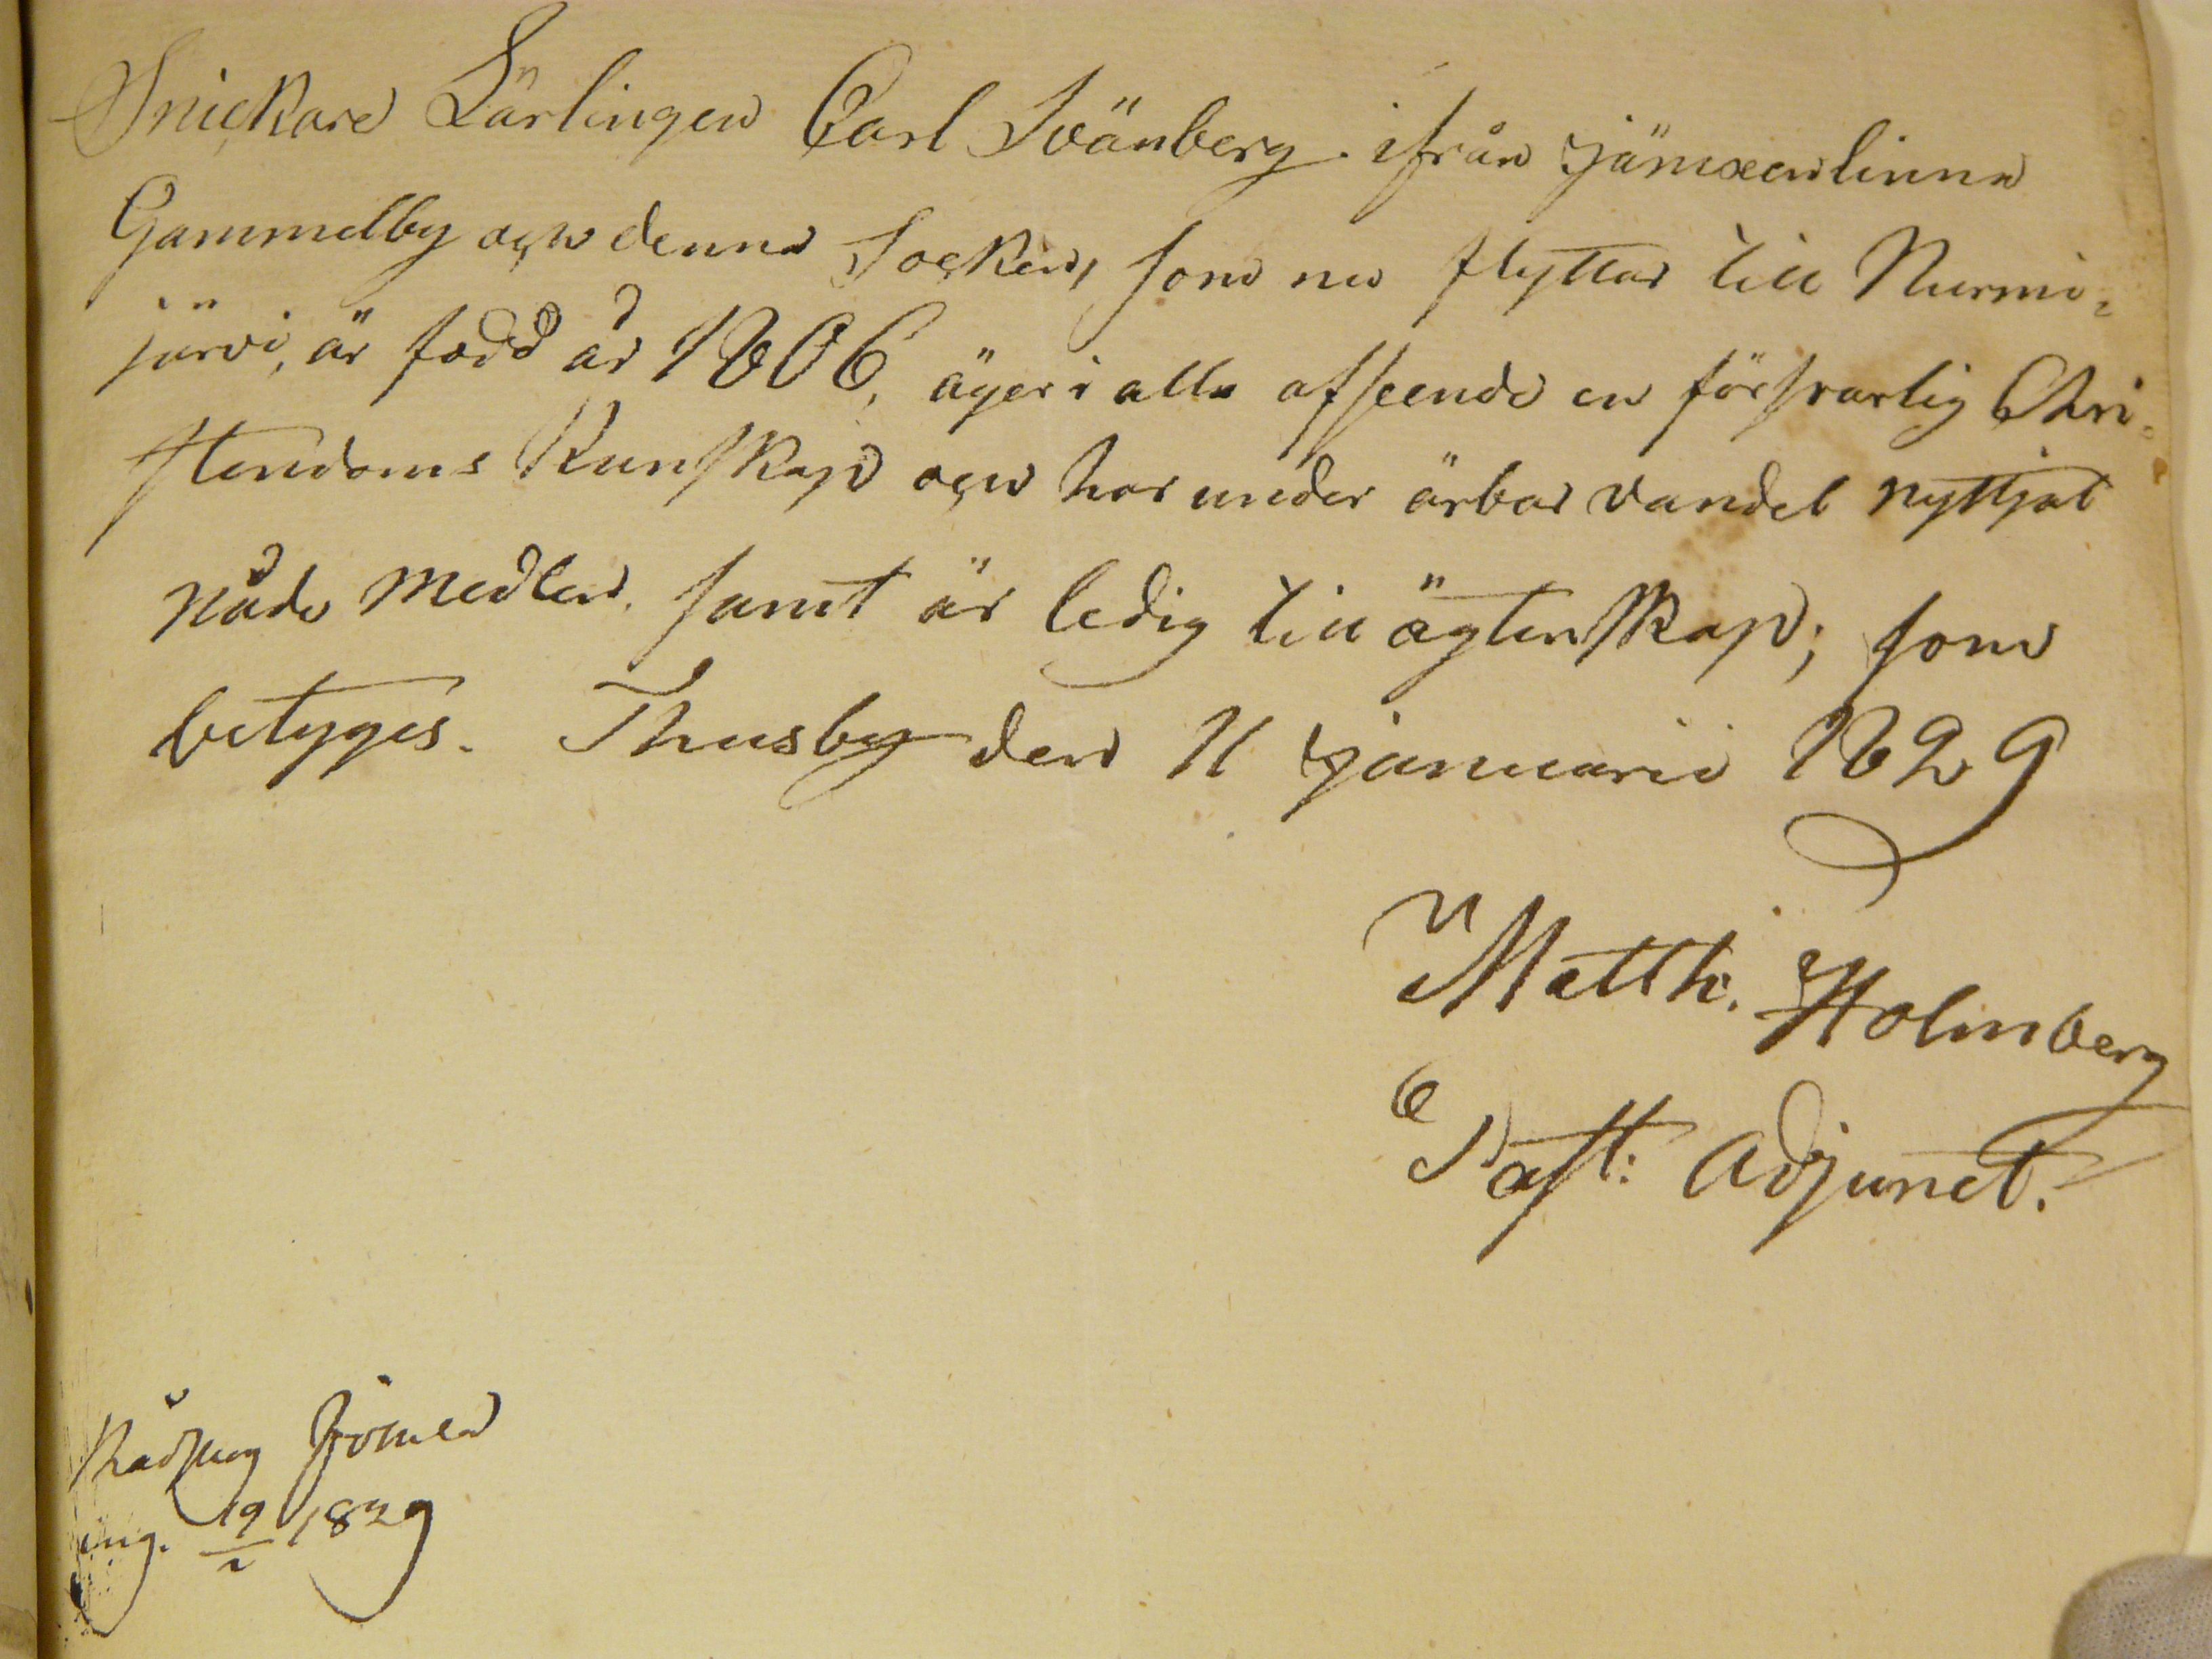 Snickare Lärlingen Carl Svänberg ifrån Jämxenlinna
Gammelby och denna Socken, som nu flyttar till Nurmi=
järvi, är född år 1806, äger i alla afseende en försvarlig Chri=
stendoms Kunskap och har under ärbar vandel nyttjat
nåde medlen, samt är ledig till ägtenskap; som
betyges. Thusby den 11 januarii 1829
Matth. Holmberg
Past: Adjunct.
ing. 19/1 1829